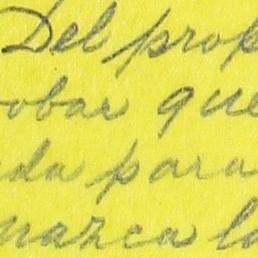 Del prop
obar que
da para
nazca la